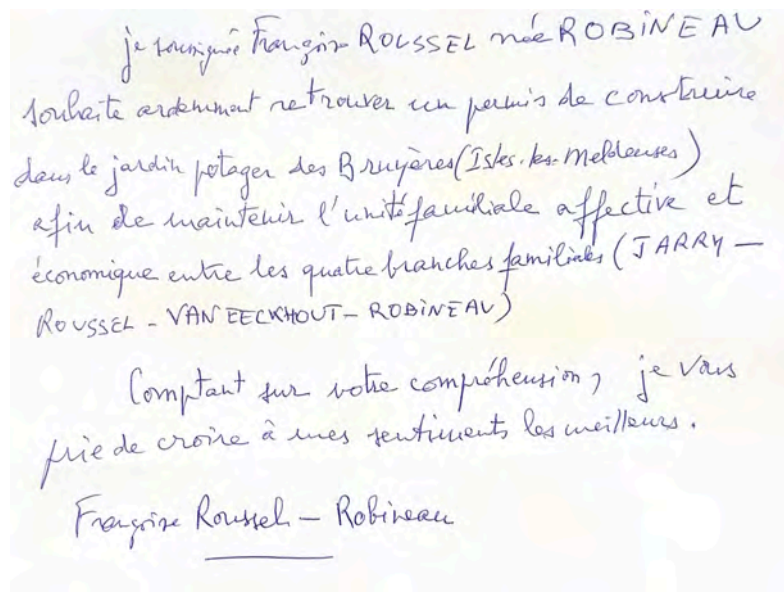 je soussignée Françoise ROUSSEL née ROBINEAU
souhaite ardemment retrouver un permis de construire
dans le jardin potager des Bruyères (Isles-les-Meldeuses)
afin de maintenir l'unité familiale affective et
économique entre les quatre branches familiales (JARRY -
ROUSSEL - VAN EECKHOUT - ROBINEAU)
Comptant sur votre compréhension, je vous
prie de croire à mes sentiments les meilleurs.
Françoise Roussel - Robineau